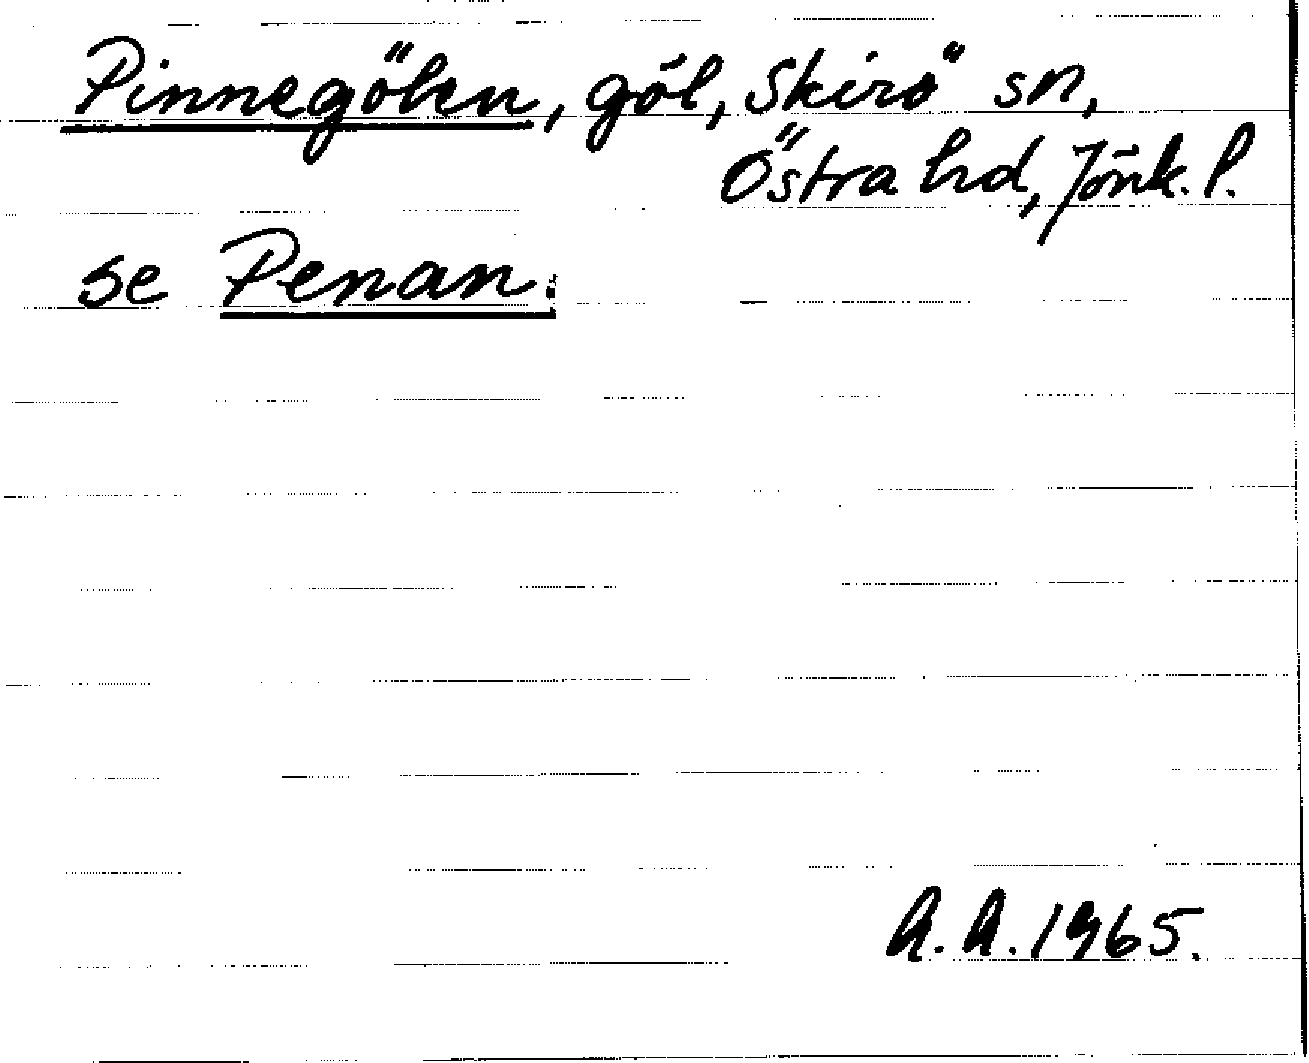 Pinnegölen, göl, Skirö sn,
Östra hd, Jönk. l.
se Penan.
A.A. 1965.